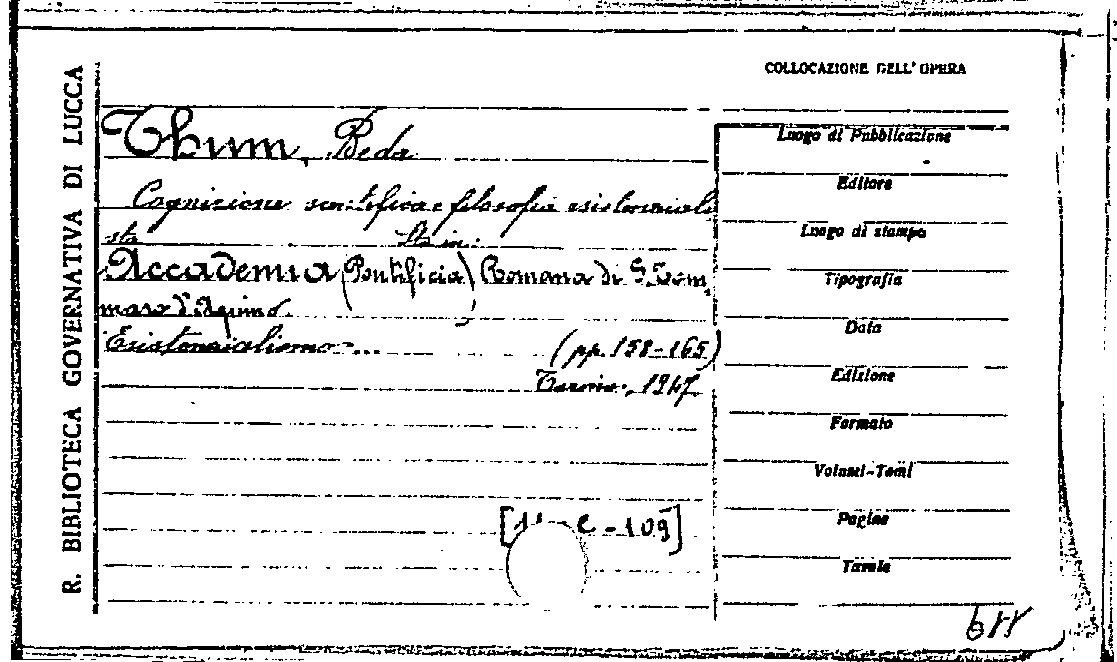 R. BIBLIOTECA GOVERNATIVA DI LUCCA
COLLOCAZIONE DELL'OPERA
Thum, Beda
Cognizione scientifica e filosofia esistenziali
sta Sta in:
Accademia (Pontificia) Romana di S. Tom
maso d'Aquino.
Esistenzialismo... (pp. 158-165)
Torino, 1947
[ c - 109]
Luogo di Pubblicazione
Editore
Luogo di stampa
Tipografia
Data
Edizione
Formato
Volumi-Tomi
Pagine
Tavole